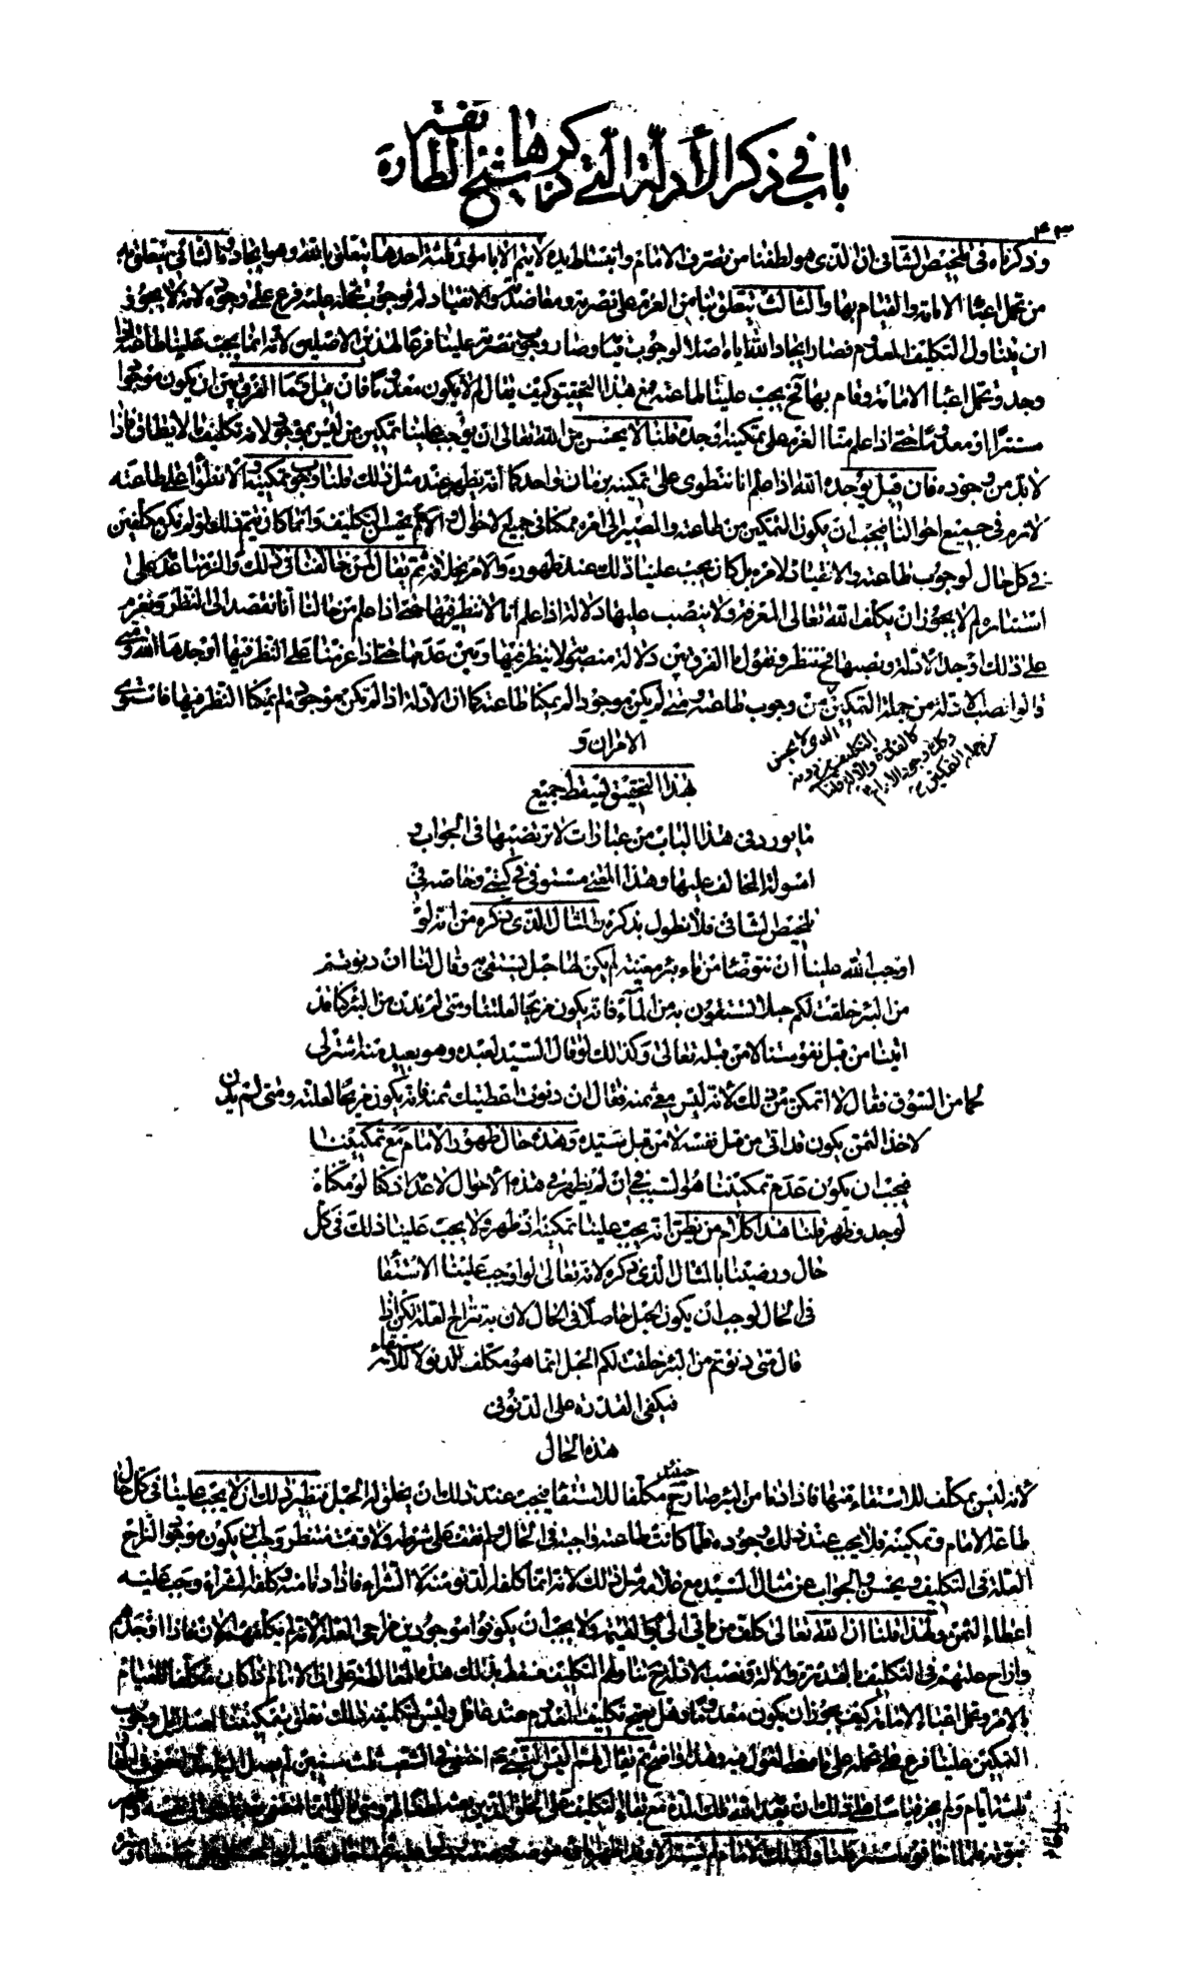 باب في ذكر الأدلة التي ذكرها شيخ الطائفة
وذكرناه في تلخيص الشافي ان الذي هو لطفنا من تصرف الامام وانبساط يده لا يتم الا بامور ثلثة احدها يتعلق بالله وهو ايجاده والثاني يتعلق به
من تحمل اعباء الامامة والقيام بها والثالث يتعلق بنا من العزم على نصرته ومعاضدته والانقياد له فوجوب تحمله عليه فرع على وجوده لانه لا يجوز
ان يتناول التكليف المعدوم فصار ايجاد الله اياه اصلا لوجوب قيامه وصار وجوب نصرته علينا فرعا لهذين الاصلين لانه انما يجب علينا طاعته اذا
وجد وتحمل اعباء الامامة وقام بها فح يجب علينا طاعته فمع هذا التحقيق كيف يقال لم لا يكون معدوما فان قيل فما الفرق بين ان يكون موجودا
مستترا او معدوما حتى اذا علم منا العزم على تمكينه اوجده قلنا لا يحسن من الله تعالى ان يوجب علينا تمكين من ليس بموجود لانه تكليف ما لا يطاق فاذا
لابد من وجوده فان قيل يوجده الله اذا علم انا ننطوى على تمكينه بزمان واحد كما انه يظهر عند مثل ذلك قلنا وجوب تمكينه والانطواء على طاعته
لازم في جميع احوالنا فيجب ان يكون التمكين من طاعته والمصير الى امره ممكنا في جميع الاحوال والا لم يحسن التكليف وانما كان يتم ذلك لو لم نكن مكلفين
في كل حال لوجوب طاعته والانقياد لامره بل كان يجب علينا ذلك عند ظهوره والامر بخلافه ثم يقال لمن خالفنا في ذلك والزمنا عدمه على
استتاره لم لا يجوز ان يكلف الله تعالى المعرفة ولا ينصب عليها دلالة اذا علم انا لا ننظر فيها حتى اذا علم من حالنا انا نقصد الى النظر ونعزم
على ذلك اوجد الادلة ونصبها فح ننظر ونقول ما الفرق بين دلالة منصوبة لا ينظر فيها وبين عدمها حتى اذا عزمنا على النظر فيها اوجدها الله ومتى
قالوا نصب الادلة من جملة التمكين
من وجوب طاعته ومتى لم يكن موجودا لم يمكنا طاعته كما ان الادلة اذا لم تكن موجودة لم يمكنا النظر فيها فاستوى
الذي لا يحسن
التكليف من دونه
كالقدرة والآلة قلنا
وكذلك وجود الامام
من جملة التمكين
الامران و
بهذا التحقيق يسقط جميع
ما يورد في هذا الباب من عبارات لا نرتضيها في الجواب و
اسولة المخالف عليها وهذا المعنى مستوفى في كتبي وخاصة في
تلخيص الشافي فلا نطول بذكره والمثال الذي ذكره من انه لو
اوجب الله علينا ان نتوضأ من ماء بئر معينة لم يكن لها حبل نستقي به وقال لنا ان دنوتم
من البئر خلقت لكم حبلا تستقون به من الماء فانه يكون مزيحا لعلتنا ومتى لم ندن من البئر كنا قد
اتينا من قبل نفوسنا لا من قبله تعالى وكذلك لو قال السيد لعبده وهو بعيد منه اشتر لي
لحما من السوق فقال لا اتمكن من ذلك لانه ليس معي ثمنه فقال ان دنوت اعطيتك ثمنه فانه يكون مزيحا لعلته ومتى لم يدن
لاخذ الثمن يكون قد اتى من قبل نفسه لا من قبل سيده وهذه حال ظهور الامام مع تمكيننا
فيجب ان يكون عدم تمكيننا هو السبب في ان لم يظهر في هذه الاحوال لا عدمه اذ كنا لو مكناه
لوجد وظهر قلنا هذا كلام من يظن انه يجب علينا تمكينه اذا ظهر ولا يجب علينا ذلك في كل
حال ورضينا بالمثال الذي ذكره لانه تعالى لو اوجب علينا الاستقاء
في الحال لوجب ان يكون الحبل حاصلا في الحال لان به تنزاح العلة لكن اذا
قال متى دنوتم من البئر خلقت لكم الحبل انما هو مكلف للدنو لا للاستقاء
فيكفي القدرة على الدنو في
هذه الحال
لانه ليس بمكلف للاستقاء منها فاذا دنا من البئر صار ح مكلفا للاستقاء فيجب عند ذلك ان يخلق له الحبل فنظير ذلك ان لا يجب علينا في كل حال
طاعة الامام وتمكينه فلا يجب عند ذلك وجوده فلما كانت طاعته واجبة في الحال ولم نقف على شرطه ولا وقت منتظر وجب ان يكون موجودا لتنزاح
العلة في التكليف ويحسن والجواب عن مثال السيد مع غلامه مثل ذلك لانه انما كلفه الدنو منه لا الشراء فاذا دنا منه وكلفه الشراء وجب عليه
اعطاء الثمن ولهذا قلنا ان الله تعالى كلف من ياتي الى يوم القيمة ولا يجب ان يكونوا موجودين مزاحي العلة لانه لم يكلفهم الان فاذا اوجدهم
وازاح علتهم في التكليف بالقدرة والآلة ونصب الادلة ح تناولهم التكليف فسقط بذلك هذه المغالطة على ان الامام اذا كان مكلفا للقيام
بالامر وتحمل اعباء الامامة كيف يجوز ان يكون معدوما وهل يصح تكليف المعدوم عند عاقل وليس لتكليفه ذلك تعلق بتمكيننا اصلا بل وجوب
التمكين علينا فرع على تحمله على ما مضى القول فيه وهذا واضح ثم يقال لهم اليس النبي ص اختفى في الشعب ثلث سنين لم يصل اليه احد واختفى في الغار
ثلثة ايام ولم يجز قياسا على ذلك ان يعدمه الله تلك المدة مع بقاء التكليف على الخلق الذين بعثه لطفا لهم ومتى قالوا انما